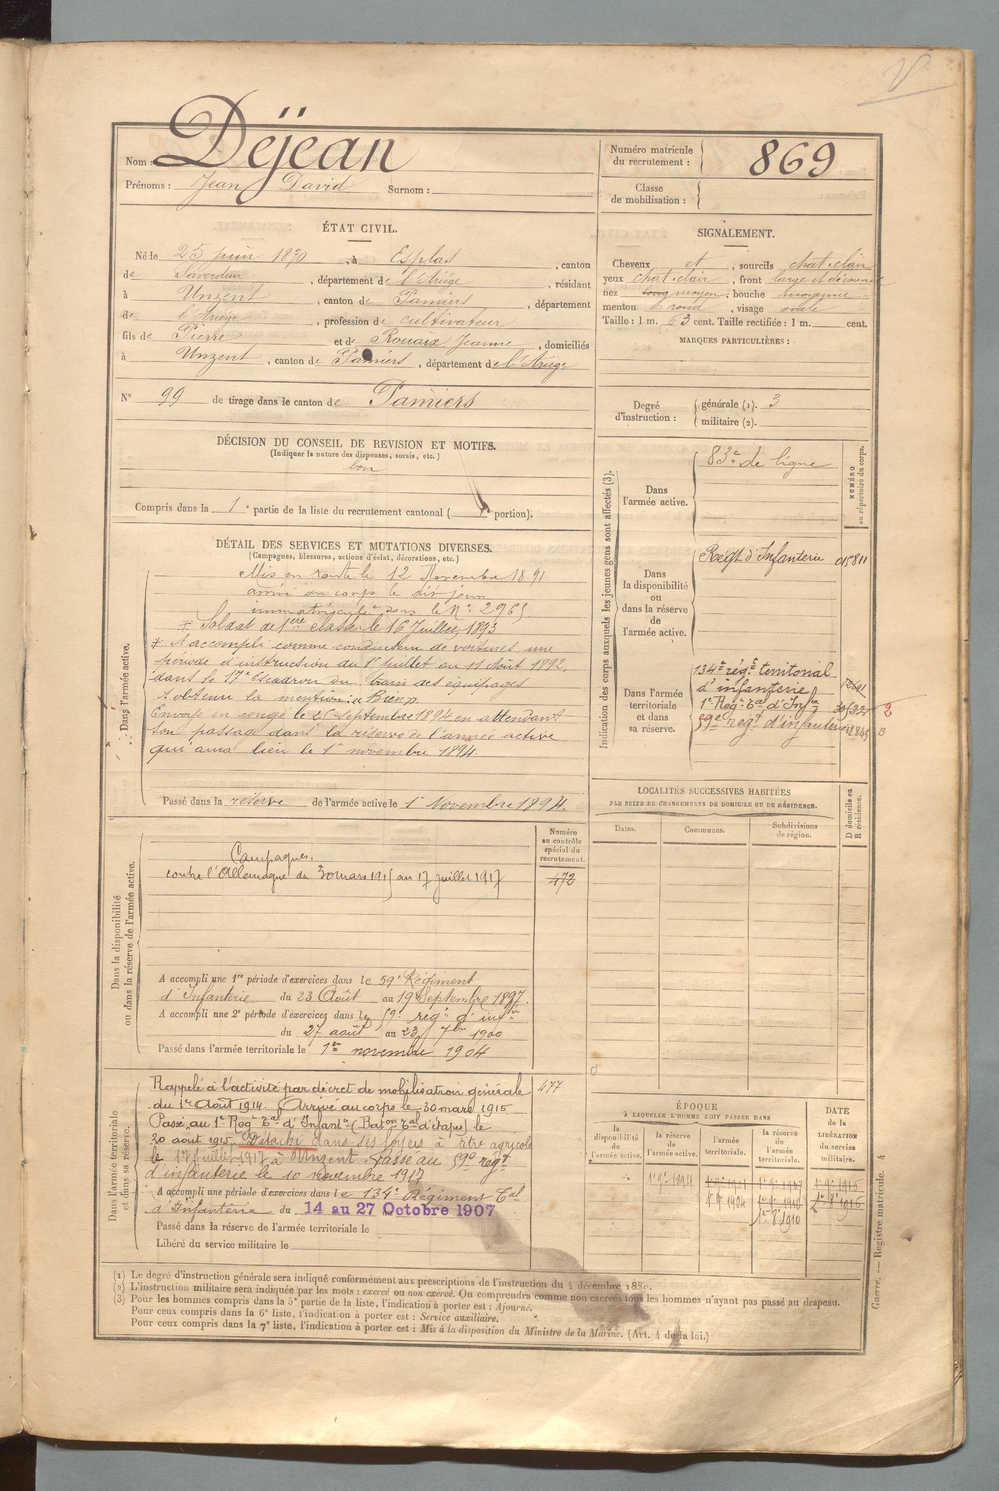 Nom : Déjean
Prénoms : Jean David Surnom :
Numéro matricule
du recrutement : 869
Classe
de mobilisation :
ÉTAT CIVIL.
Né le 25 juin 1870, à Esplas, canton
de Saverdun, département de l'Ariège, résidant
à Unzent, canton de Pamiers, département
de l'Ariège, profession de cultivateur
fils de Pierre et de Rouaix Jeanne, domiciliés
à Unzent, canton de Pamiers, département de l'Ariège
N° 99 de tirage dans le canton de Pamiers
SIGNALEMENT.
Cheveux et, sourcils chat. clair
yeux chat. clair, front large et découvert
nez long moyen, bouche moyenne
menton rond, visage ovale
Taille : 1 m. 63 cent. Taille rectifiée : 1 m. cent.
MARQUES PARTICULIÈRES :
Degré
d'instruction :
générale (1). 3
militaire (2).
DÉCISION DU CONSEIL DE REVISION ET MOTIFS.
(Indiquer la nature des dispenses, sursis, etc.)
bon
Compris dans la 1e partie de la liste du recrutement cantonal ( portion).
DÉTAIL DES SERVICES ET MUTATIONS DIVERSES.
(Campagnes, blessures, actions d'éclat, décorations, etc.)
Dans l'armée active.
Mis en route le 12 Novembre 1891
arrivé au corps le dit jour
immatriculé sous le N° 2965
* Soldat de 1ère classe le 16 Juillet 1893
* A accompli comme conducteur de voitures une
période d'instruction du 1er juillet au 11 Août 1892
dans le 17e Escadron du train des équipages
A obtenu la mention : "Bien"
Envoyé en congé le 25 Septembre 1894 en attendant
son passage dans la réserve de l'armée active
qui aura lieu le 1er novembre 1894.
Passé dans la réserve de l'armée active le 1er Novembre 1894.
Indication des corps auxquels les jeunes gens sont affectés (3).
NUMÉRO
au répertoire du corps.
Dans
l'armée active.
83e de ligne
Dans
la disponibilité
ou
dans la réserve
de
l'armée active.
Régt d'Infanterie 015811
Dans l'armée
territoriale
et dans
sa réserve.
134e régt territorial
d'infanterie
1er Régt Tal d'Infie
59e régt d'infanterie
LOCALITÉS SUCCESSIVES HABITÉES
PAR SUITE DE CHANGEMENTS DE DOMICILE OU DE RÉSIDENCE.
D domicile ou
R résidence.
Dates. Communes. Subdivisions
de région.
Dans la disponibilité
ou dans la réserve de l'armée active.
Numéro
au contrôle
spécial du
recrutement.
472
Campagnes.
contre l'Allemagne du 30 mars 1915 au 17 juillet 1917
A accompli une 1re période d'exercices dans le 59e Régiment
d'Infanterie du 23 Août au 19 Septembre 1897.
A accompli une 2e période d'exercices dans le 59e régt d'infie
du 27 août au 23 7bre 1900
Passé dans l'armée territoriale le 1er novembre 1904
Dans l'armée territoriale
et dans sa réserve.
477
Rappelé à l'activité par décret de mobilisation générale
du 1er Août 1914. Arrivé au corps le 30 mars 1915
Passé au 1er Régt Tal d'Infantie (Baton Tal d'étapes) le
30 août 1915. Détaché dans ses foyers à titre agricole
le 17 juillet 1917 à Unzent. Passé au 59e régt
d'infanterie le 10 novembre 1917
A accompli une période d'exercices dans le 134e Régiment Tal
d'Infanterie du 14 au 27 Octobre 1907
Passé dans la réserve de l'armée territoriale le
Libéré du service militaire le
ÉPOQUE
À LAQUELLE L'HOMME DOIT PASSER DANS
la
disponibilité
de
l'armée active.
la réserve
de
l'armée active.
l'armée
territoriale.
la réserve
de
l'armée
territoriale.
DATE
DE LA
LIBÉRATION
du service
militaire.
(1) Le degré d'instruction générale sera indiqué conformément aux prescriptions de l'instruction du 4 décembre
(2) L'instruction militaire sera indiquée par les mots : exercé ou non exercé. On comprendra comme non exercés tous les hommes n'ayant pas passé au drapeau.
(3) Pour les hommes compris dans la 5e partie de la liste, l'indication à porter est : Ajourné.
Pour ceux compris dans la 6e liste, l'indication à porter est : Service auxiliaire.
Pour ceux compris dans la 7e liste, l'indication à porter est : Mis à la disposition du Ministre de la Marine. (Art. 4 de la loi.)
Guerre. — Registre matricule. 4